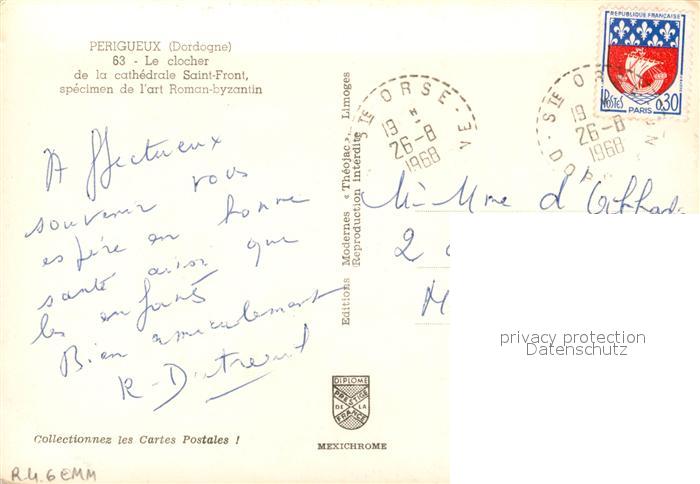 PERIGUEUX (Dordogne)
63 - Le clocher
de la cathédrale Saint-Front,
spécimen de l'art Roman-byzantin
Affectueux
souvenir vous
espère en bonne
santé ainsi que
les enfants
Bien amicalement
R. Dutreuil
Collectionnez les Cartes Postales !
R.4.6 EMM
Editions Modernes « Théojac », Limoges
Reproduction interdite
DIPLOME
PRESTIGE
DE LA
FRANCE
MEXICHROME
STE ORSE
19
26-8
1968
STE OR
19
26-8
1968
DOR
REPUBLIQUE FRANÇAISE
POSTES
PARIS
0,30
M. Mme d'Abbad
2
M
privacy protection
Datenschutz